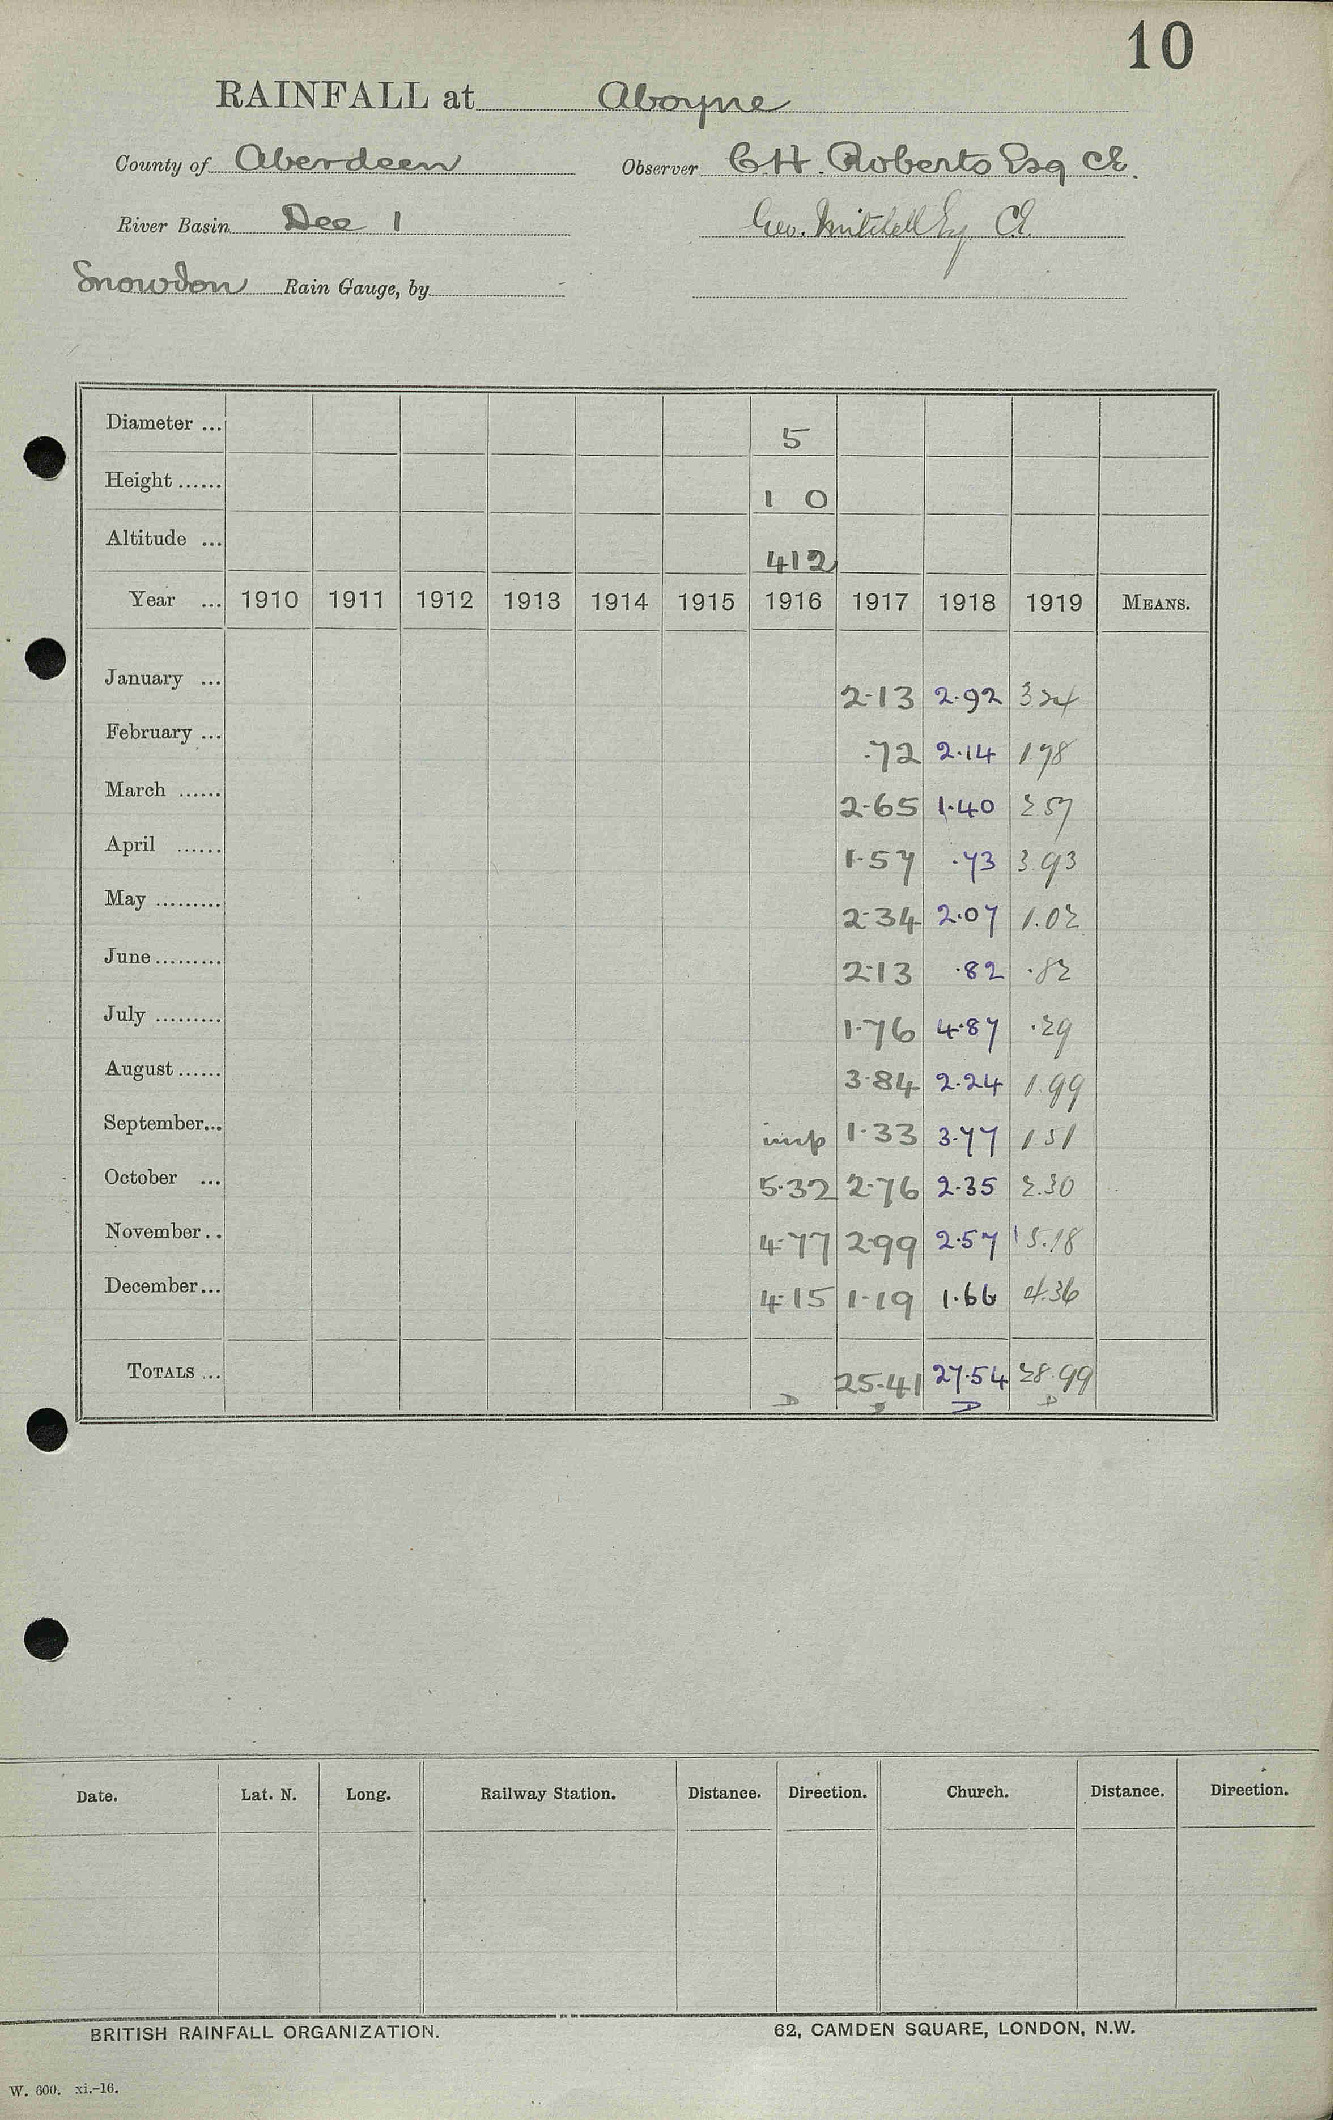 10
RAINFALL at Aboyne
County of Aberdeen Observer C.H. Roberts Esq CE.
River Basin Dee 1 Geo. Mitchell Esq CE
Snowdon Rain Gauge, by
Diameter ... 5
Height ...... 1 0
Altitude ... 412
Year ... 1910 1911 1912 1913 1914 1915 1916 1917 1918 1919 MEANS.
January ... 2·13 2·92 3 24
February ... ·72 2·14 1 78
March ...... 2·65 1·40 2 57
April ...... 1·57 ·73 3 93
May ......... 2·34 2·07 1.02
June ......... 2·13 ·82 ·82
July ......... 1·76 4·87 ·29
August ...... 3·84 2·24 1.99
September... imp 1·33 3·77 1 51
October ... 5·32 2·76 2·35 2.30
November .. 4·77 2·99 2·57 5.18
December ... 4·15 1·19 1·66 4.36
TOTALS ... 25·41 27·54 28.99
D D D D
Date. Lat. N. Long. Railway Station. Distance. Direction. Church. Distance. Direction.
BRITISH RAINFALL ORGANIZATION. 62, CAMDEN SQUARE, LONDON, N.W.
W. 600. xi.-16.